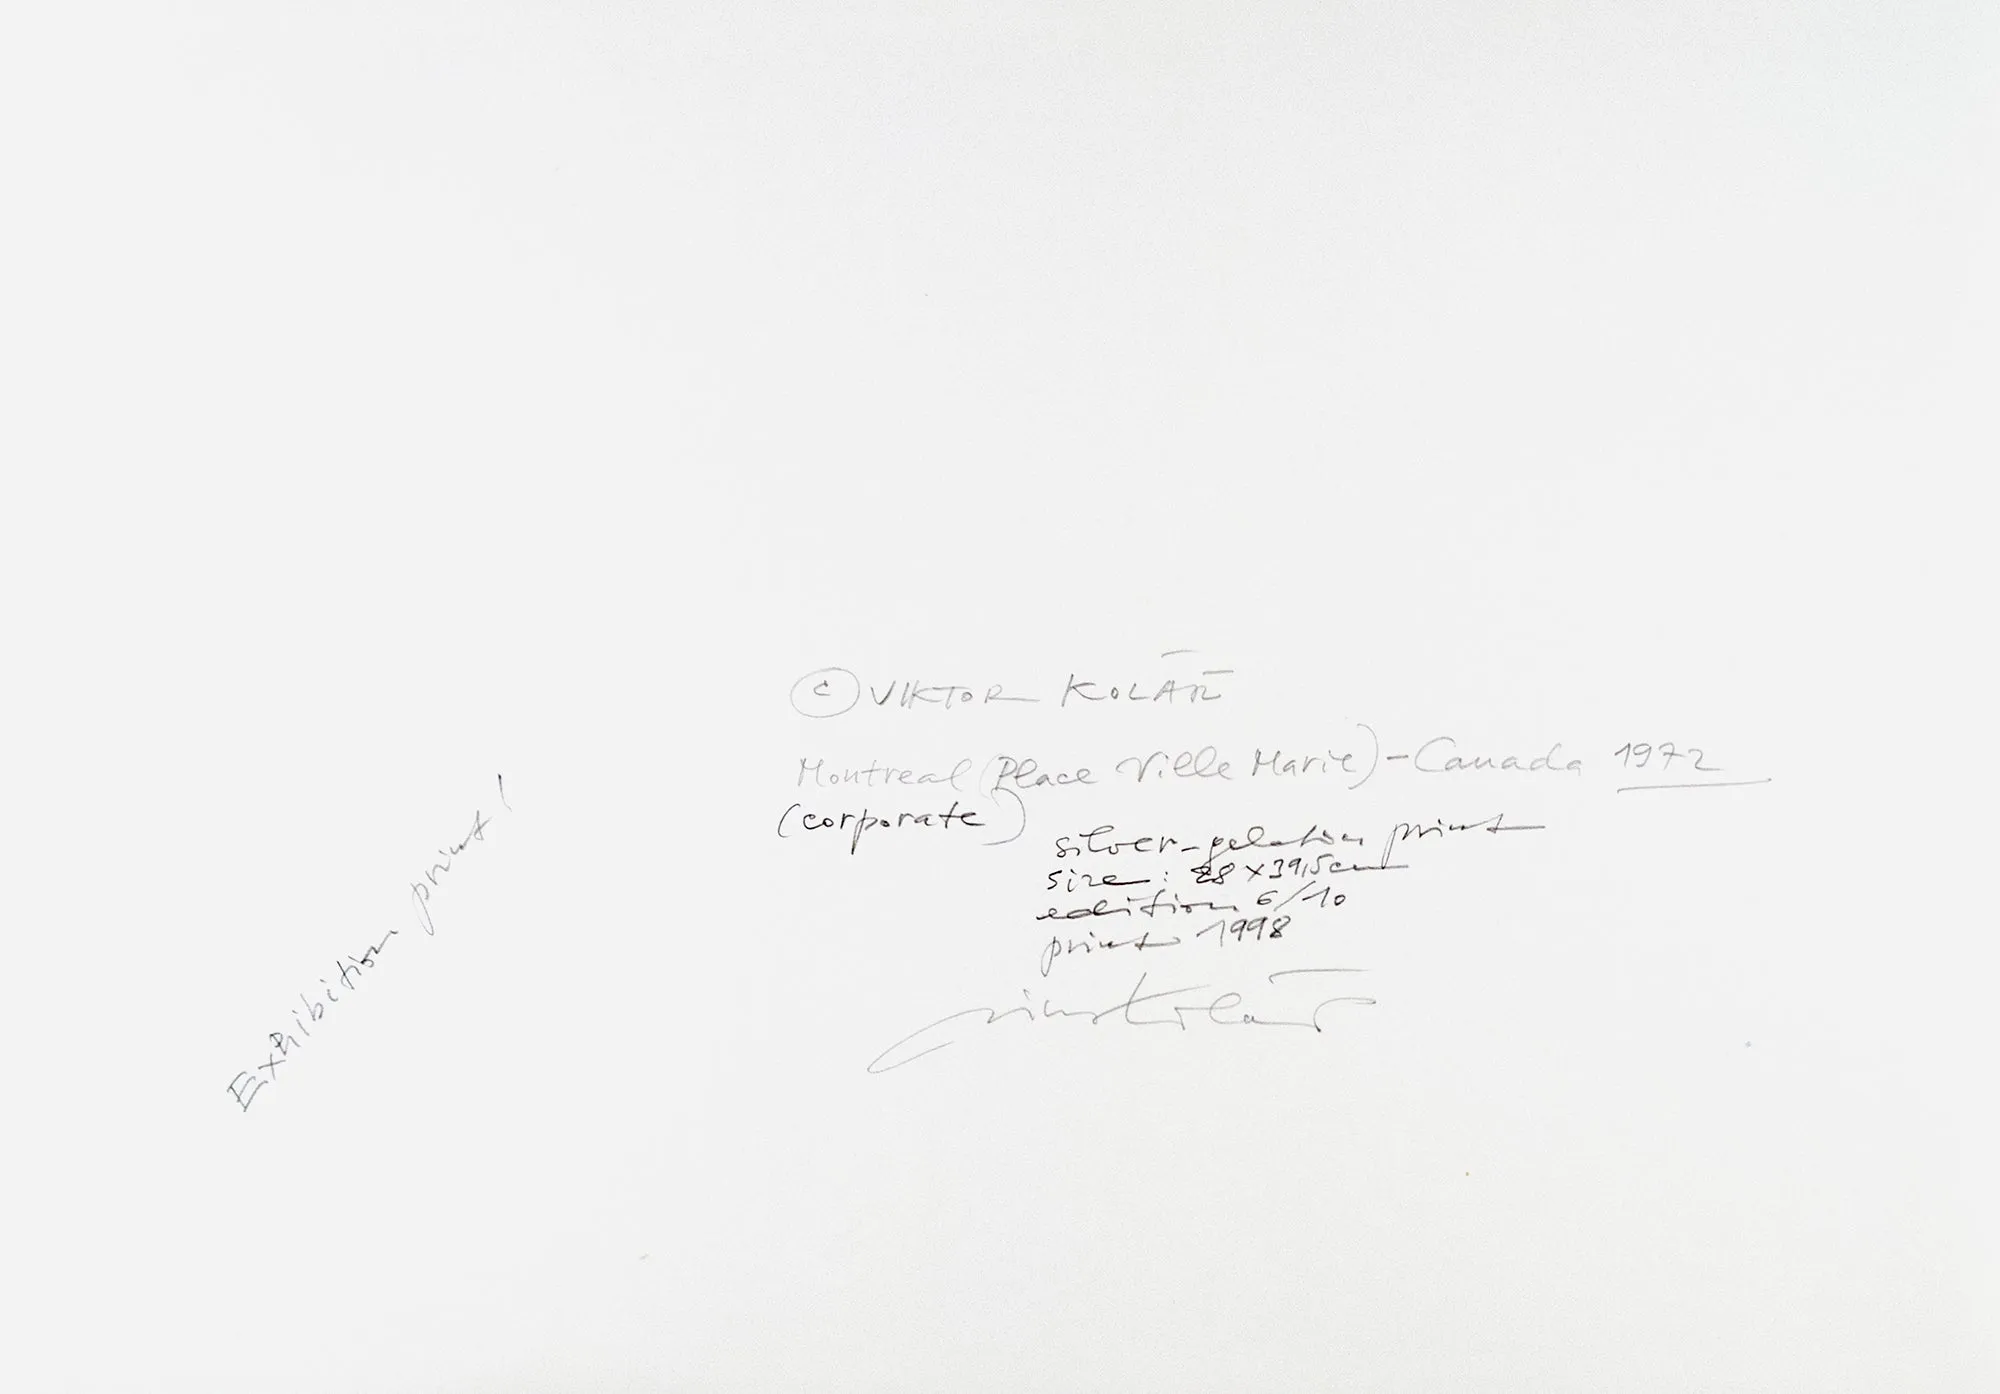 © VIKTOR KOLÁŘ
Montreal (Place Ville Marie) - Canada 1972
(corporate)
silver-gelatin print
size: 28 x 39,5 cm
edition 6/10
print 1998
Viktor Kolář
Exhibition print!